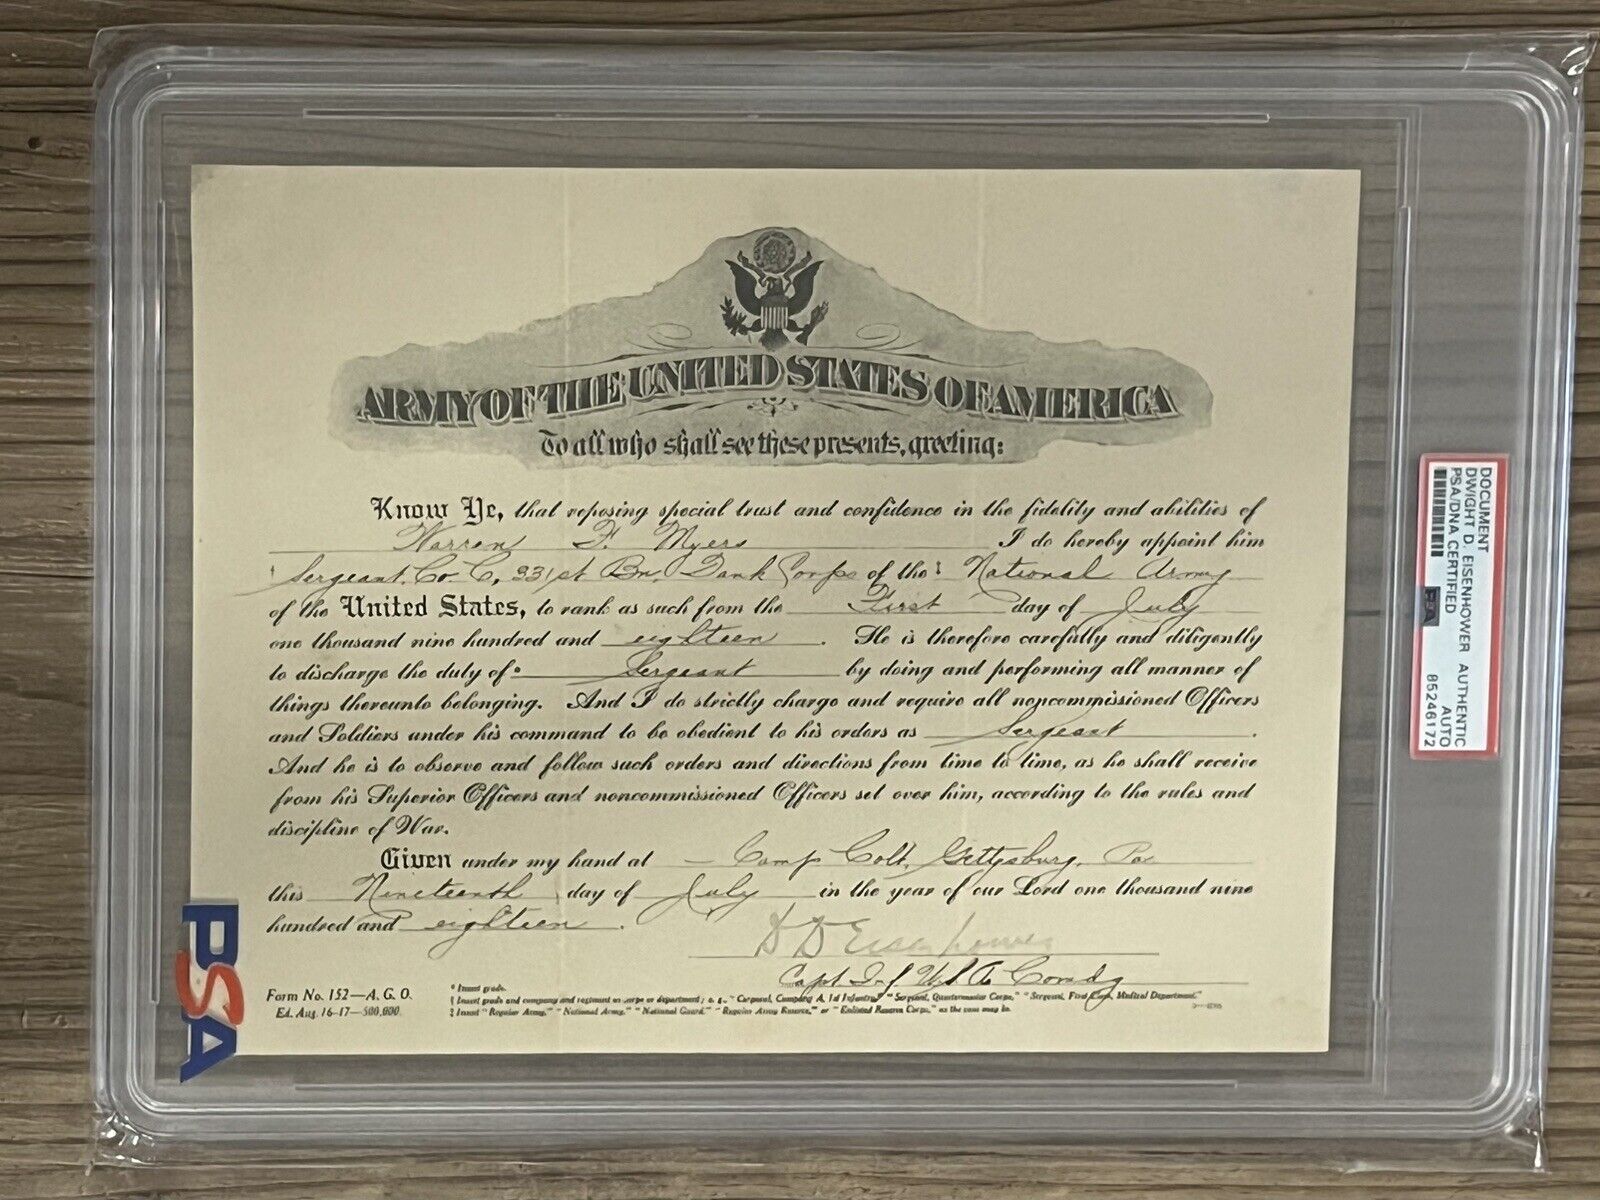 ARMY OF THE UNITED STATES OF AMERICA
To all who shall see these presents, greeting:
Know Ye, that reposing special trust and confidence in the fidelity and abilities of
Warren F. Myers I do hereby appoint him
† Sergeant, Co. C, 331st Bn, Tank Corps of the ‡ National Army
of the United States, to rank as such from the First day of July
one thousand nine hundred and eighteen. He is therefore carefully and diligently
to discharge the duty of * Sergeant by doing and performing all manner of
things thereunto belonging. And I do strictly charge and require all noncommissioned Officers
and Soldiers under his command to be obedient to his orders as Sergeant.
And he is to observe and follow such orders and directions from time to time, as he shall receive
from his Superior Officers and noncommissioned Officers set over him, according to the rules and
discipline of War.
Given under my hand at Camp Colt, Gettysburg, Pa
this Nineteenth day of July in the year of our Lord one thousand nine
hundred and eighteen.
D D Eisenhower
Capt. Inf. U.S.A. Comdg
Form No. 152—A. G. O.
Ed. Aug. 16-17—500,000.
* Insert grade.
† Insert grade and company and regiment or corps or department; e. g., "Corporal, Company A, 1st Infantry," "Sergeant, Quartermaster Corps," "Sergeant, First Class, Medical Department."
‡ Insert "Regular Army," "National Army," "National Guard," "Regular Army Reserve," or "Enlisted Reserve Corps," as the case may be.
PSA
DOCUMENT
DWIGHT D. EISENHOWER AUTHENTIC
PSA/DNA CERTIFIED AUTO
PSA 85246172